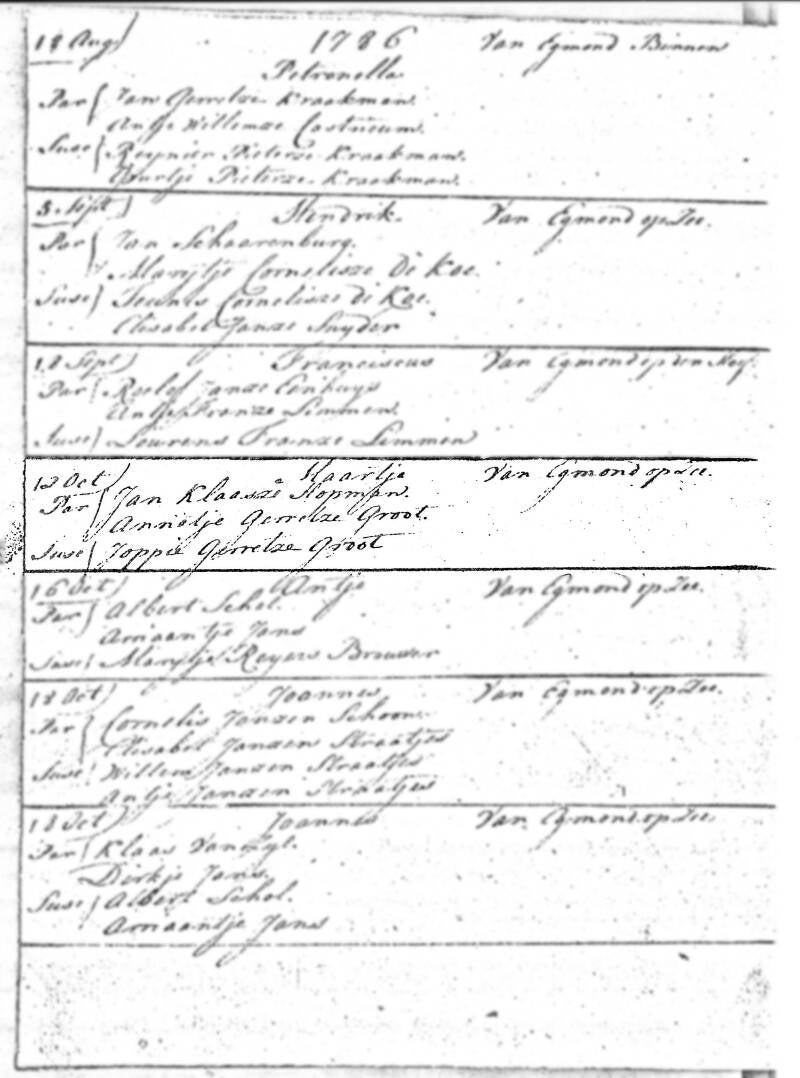 18 Aug) 1786 Van Egmond Binnen
Petronella
Par { Jan Gerretze Kraakman.
Antje Willemze Castricum.
Susc { Reynier Pieterze Kraakman.
Guurtje Pieterze Kraakman.
3. Sept) Hendrik. Van Egmond op Zee.
Par } Jan Schaarenburg.
Marytje Cornelisze De Koe.
Susc) Teunis Cornelisze de Koe.
Elisabet Janze Snyder
18 Sept) Franciscus Van Egmond op den Hoef.
Par { Roelof Janze
Antje Franze Limmen.
Susc) Lourens Franze Limmen
12 Oct) Maartje Van Egmond op Zee.
Par { Jan Klaasze Hopman.
Annetje Gerretze Groot.
Susc { Joppie Gerretze Groot
16 Oct) Antje Van Egmond op Zee.
Par { Albert Schol.
Ariaantje Jans
Susc { Marytje Reyers Brouwer
18 Oct) Joannes Van Egmond op Zee.
Par { Cornelis Janzen Schoon.
Elisabet Janzen Straatjes
Susc { Willem Janzen Straatjes
Antje Janzen Straatjes
18 Oct) Joannes Van Egmond op Zee.
Par { Klaas Vanzyl.
Dirkje Jans.
Susc { Albert Schol.
Ariaantje Jans